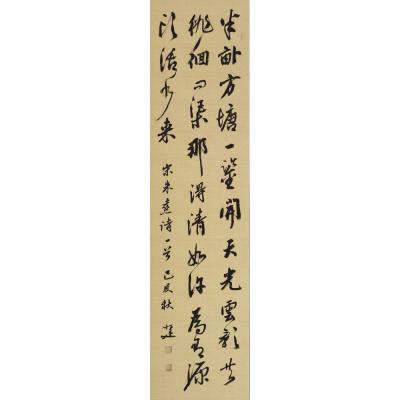 半亩方塘一鉴開天光雲影共
徘徊问渠那得清如许為有源
头活水来
宋朱熹诗一首 秋